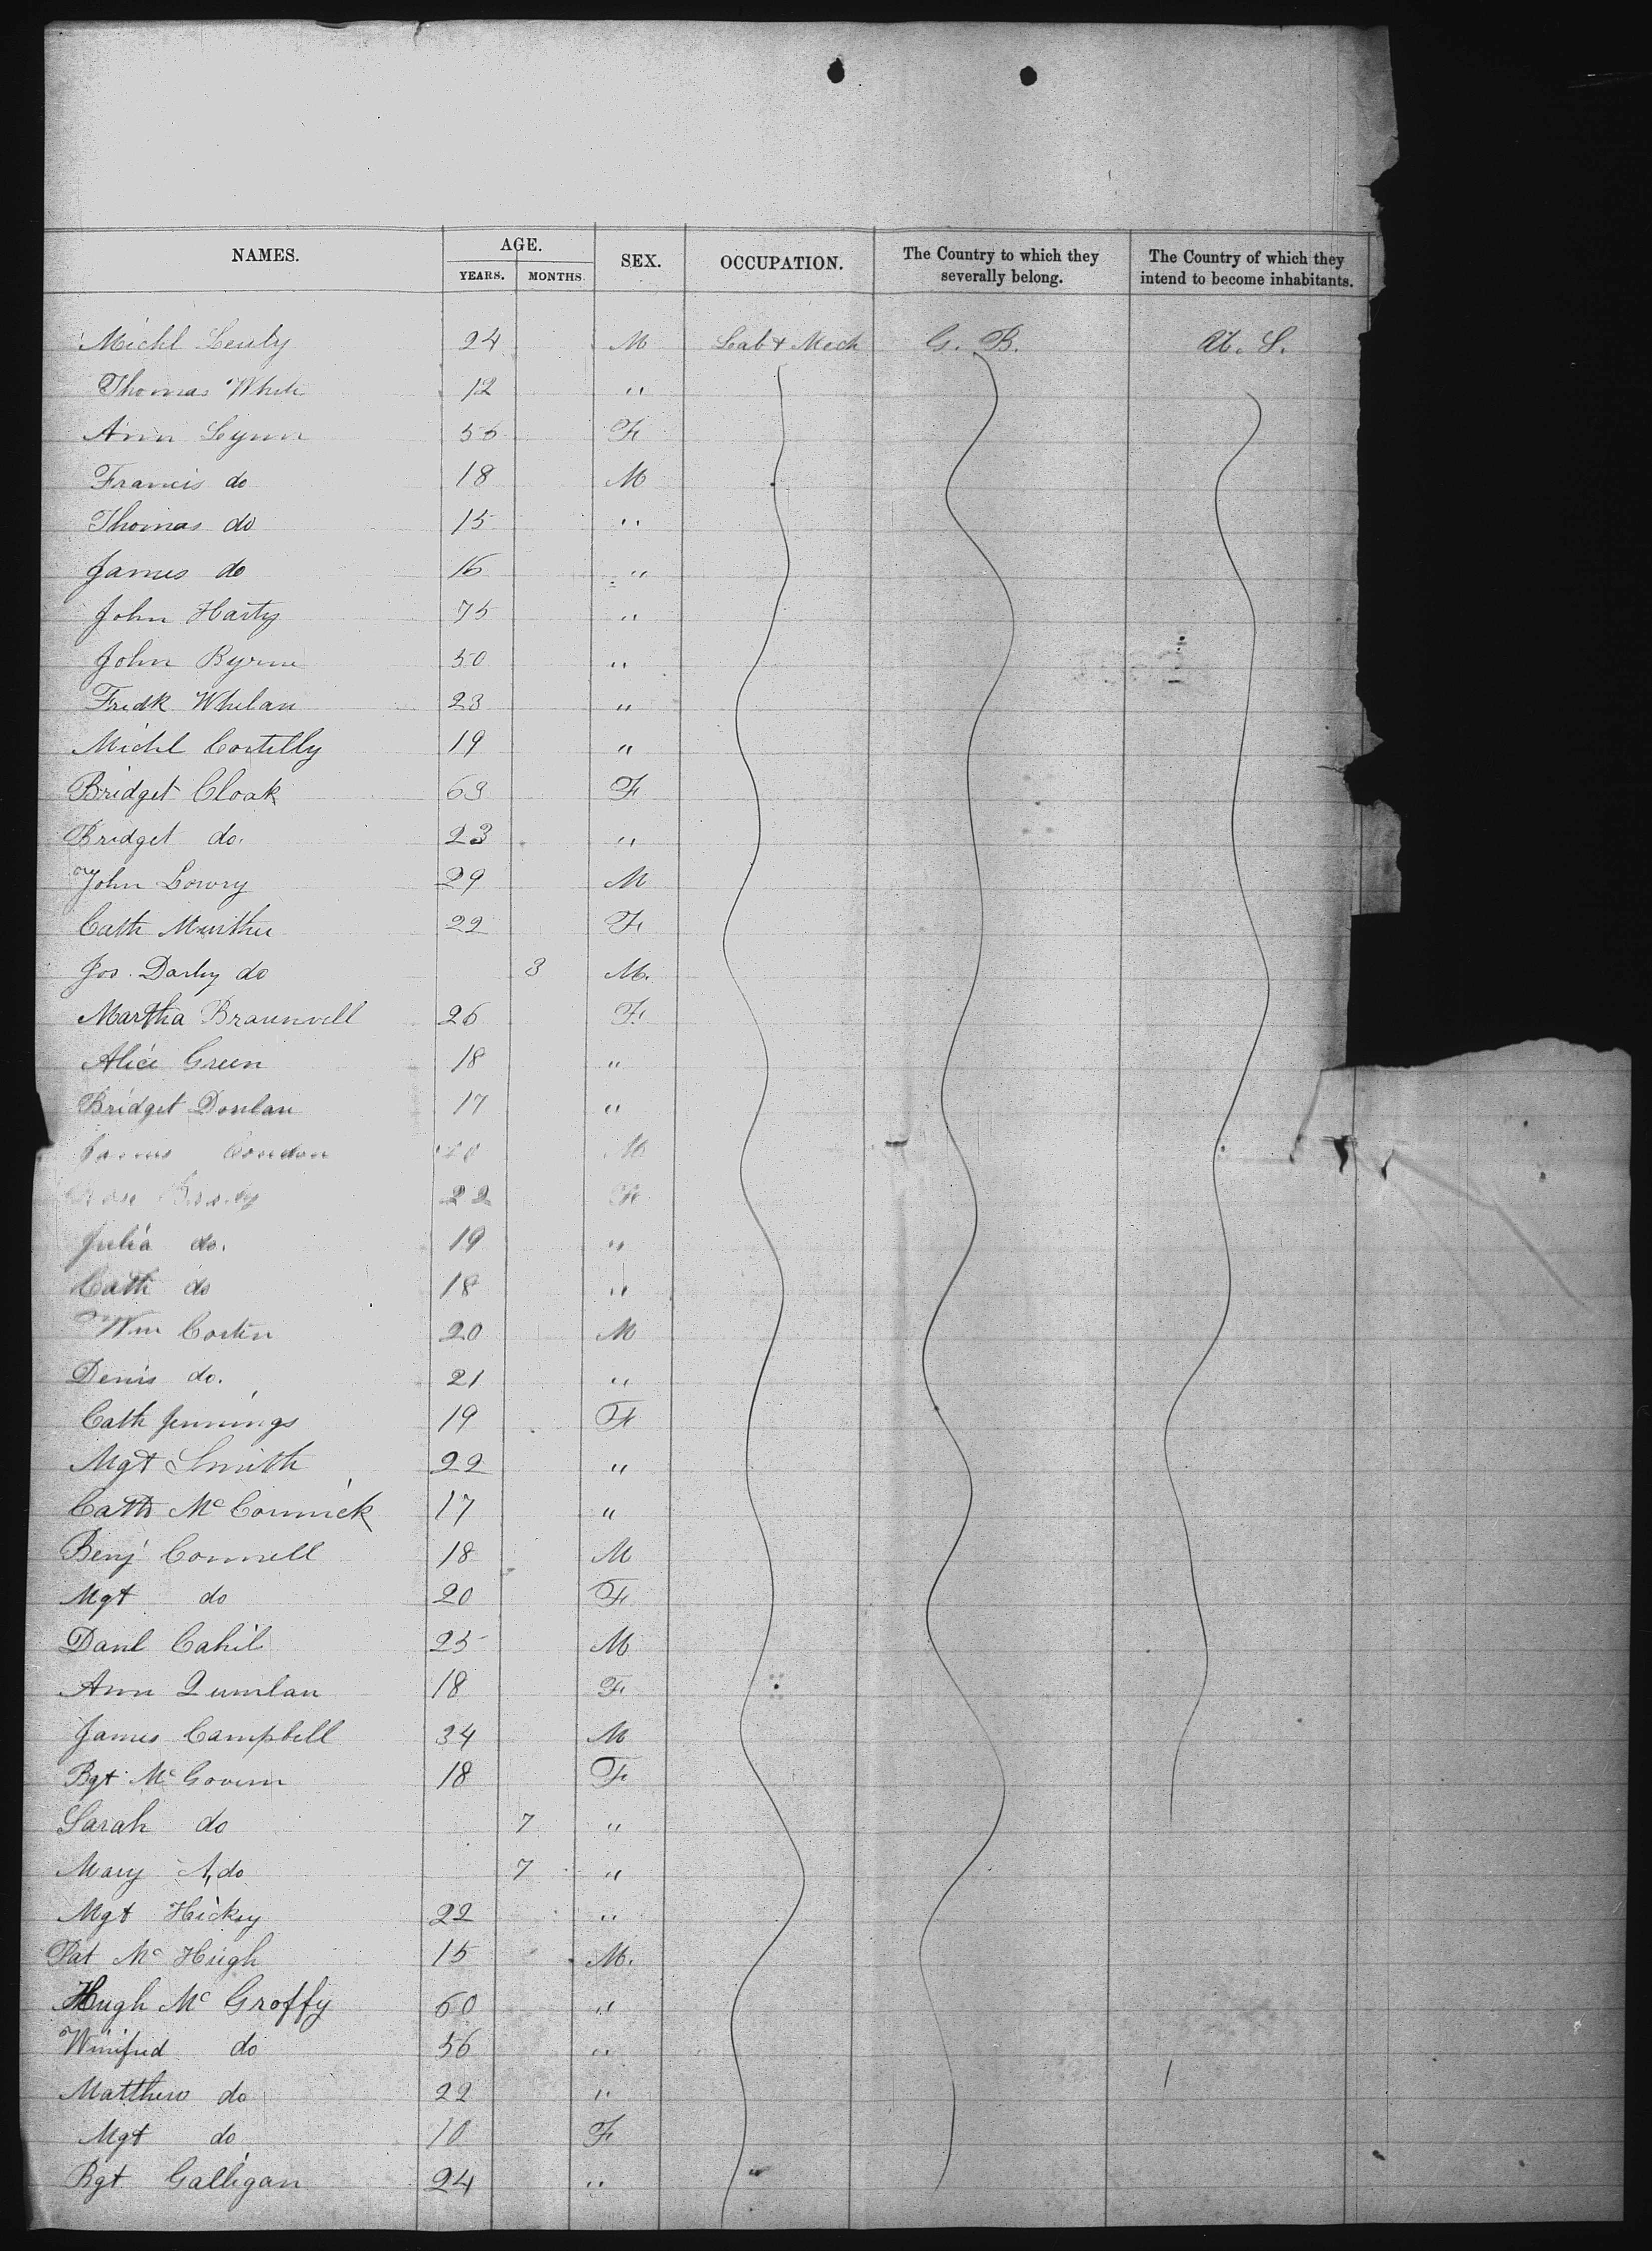 NAMES. AGE. SEX. OCCUPATION. The Country to which they severally belong. The Country of which they intend to become inhabitants.
YEARS. MONTHS.
Michl Leuly 24 M Lab & Mech G. B. U. S.
Thomas White 12 "
Ann Lynn 55 F
Francis do 18 M
Thomas do 15 "
James do 16 "
John Harty 75 "
John Byrne 50 "
Fredk Whelan 23 "
Michl Costilly 19 "
Bridget Cloak 63 F
Bridget do. 23 "
John Lowry 29 M
Cath Murther 22 F
Jos. Darby do 3 M.
Martha Braunvell 26 F.
Alice Green 18 "
Bridget Donlan 17 "
James Condon M
Rose Brody 22 F
Julia do. 19 "
Cath do 18 "
Wm Costin 20 M
Denis do. 21 "
Cath Jennings 19 F
Mgt Smith 22 "
Cath McCormick 17 "
Benj Connell 18 M
Mgt do 20 F
Danl Cahil 25 M
Ann Quinlan 18 F
James Campbell 34 M
Bgt McGovern 18 F
Sarah do 7 "
Mary A, do 7 "
Mgt Hickey 22 "
Pat McHugh 15 M.
Hugh McGroffy 60 "
Winifred do 56 "
Matthew do 22 "
Mgt do 10 F
Bgt Galligan 24 "